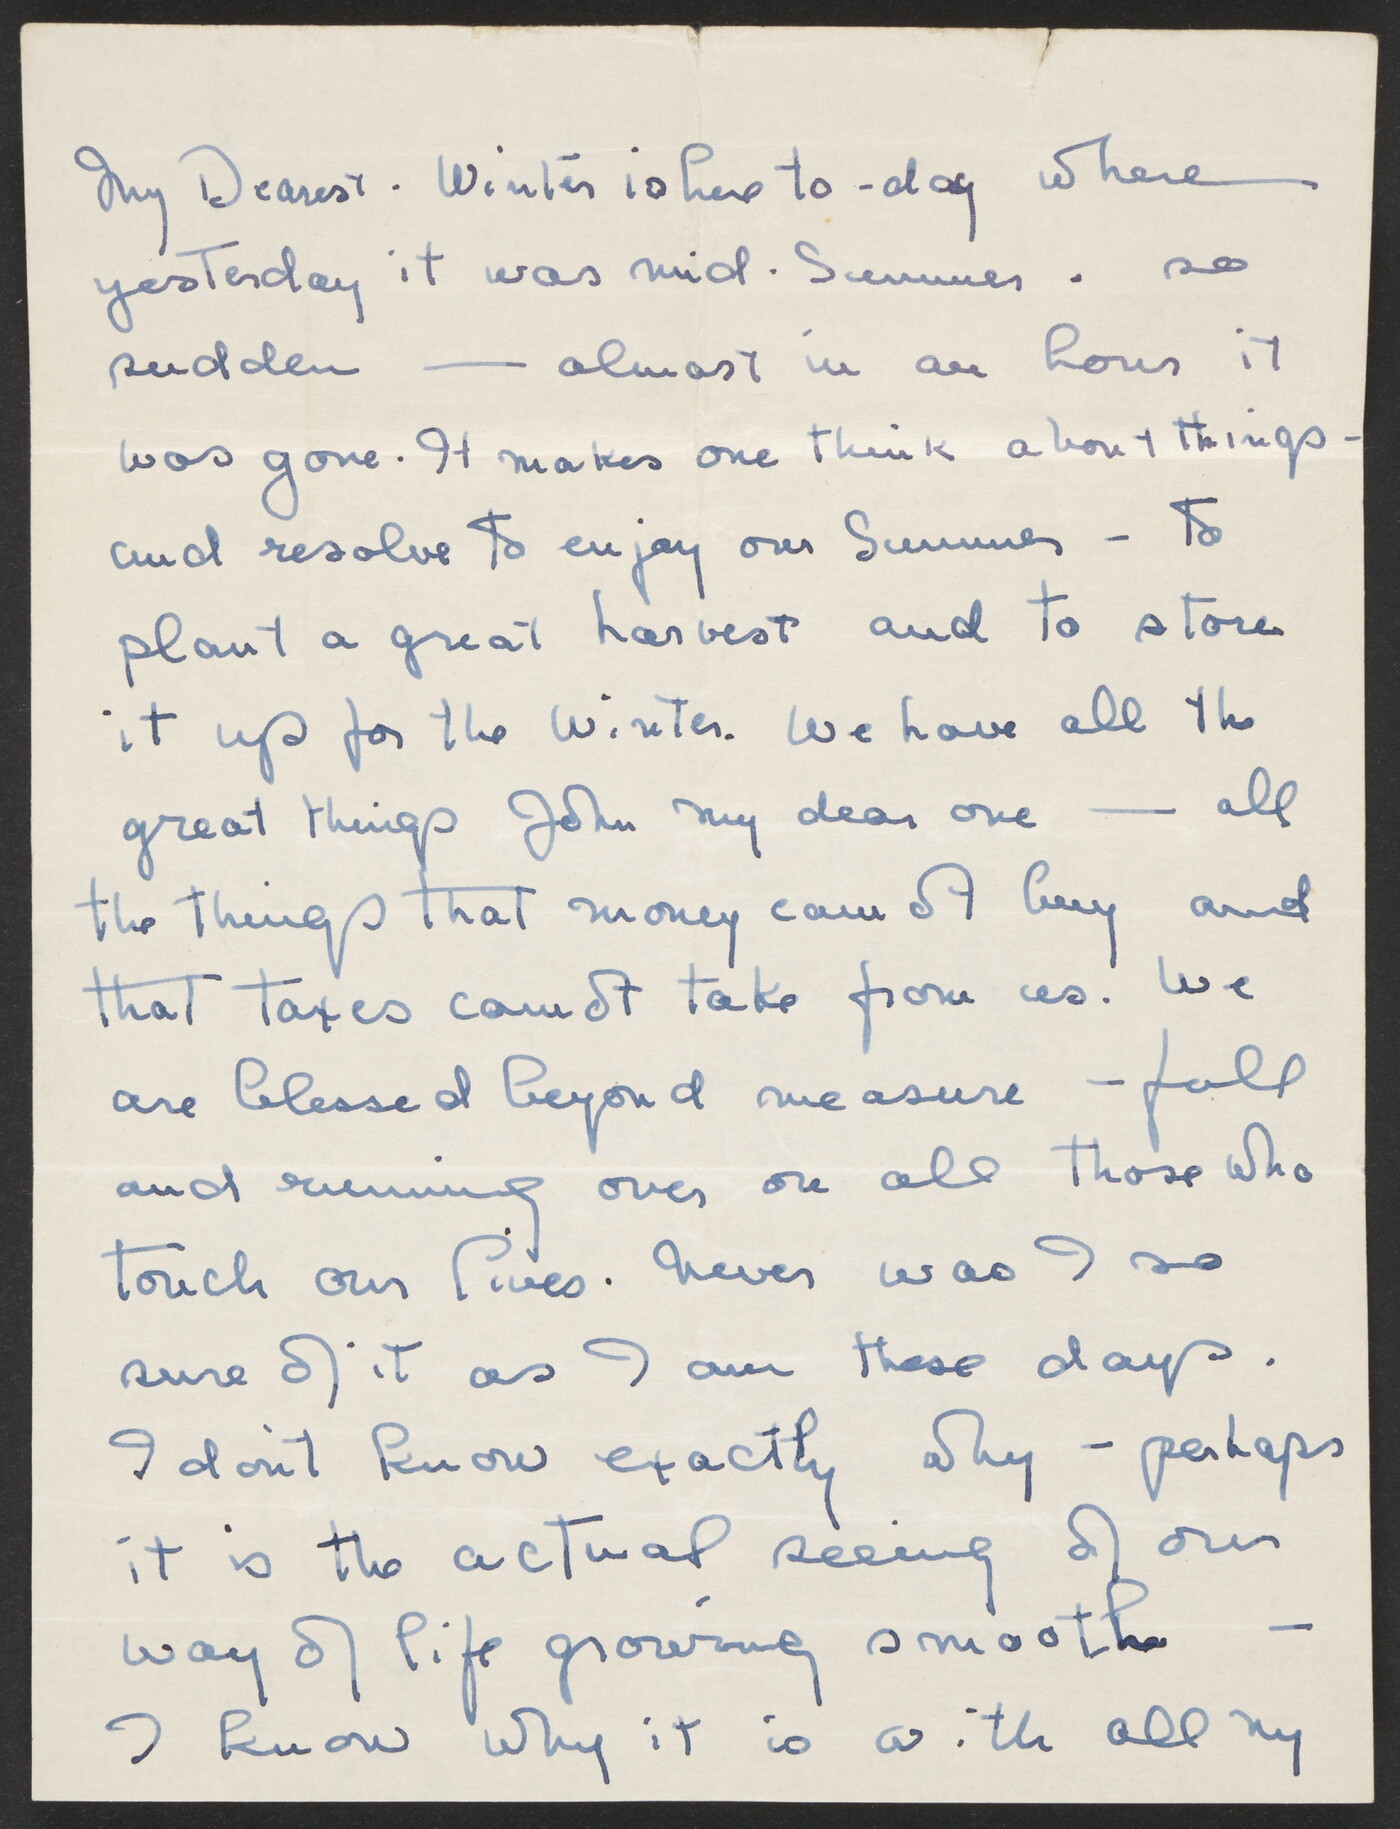 My Dearest. Winter is here to-day where
yesterday it was mid. Summer. so
sudden — almost in an hour it
was gone. It makes one think about things -
and resolve to enjoy our Summer - to
plant a great harvest and to store
it up for the Winter. We have all the
great things John my dear one — all
the things that money cannot buy and
that taxes cannot take from us. We
are blessed beyond measure - full
and running over on all those who
touch our lives. Never was I so
sure of it as I am these days.
I don't know exactly why - perhaps
it is the actual seeing of our
way of life growing smooth -
I know why it is with all my